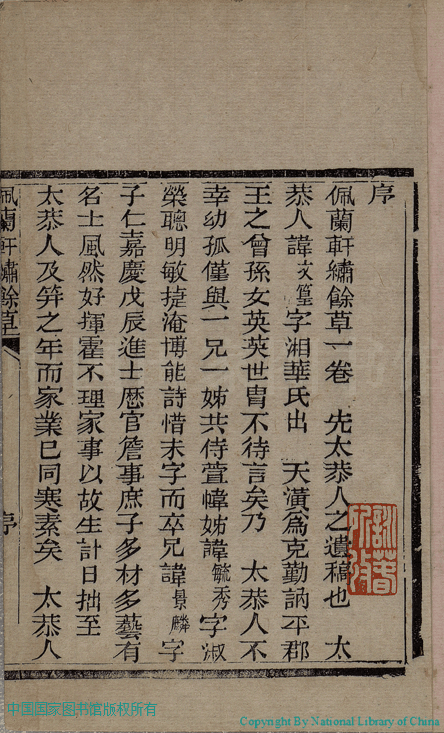 序
佩蘭軒繡餘草一卷　先太恭人之遺稿也　太
恭人諱文篁字湘華氏出　天潢爲克勤訥平郡
王之曾孫女英英世冑不待言矣乃　太恭人不
幸幼孤僅與一兄一姊共侍萱幃姊諱毓秀字淑
榮聰明敏捷淹博能詩惜未字而卒兄諱景麟字
子仁嘉慶戊辰進士歷官詹事庶子多材多藝有
名士風然好揮霍不理家事以故生計日拙至
太恭人及笄之年而家業已同寒素矣　太恭人
佩蘭軒繡餘草
序
中国国家图书馆版权所有
Copyright By National Library of China